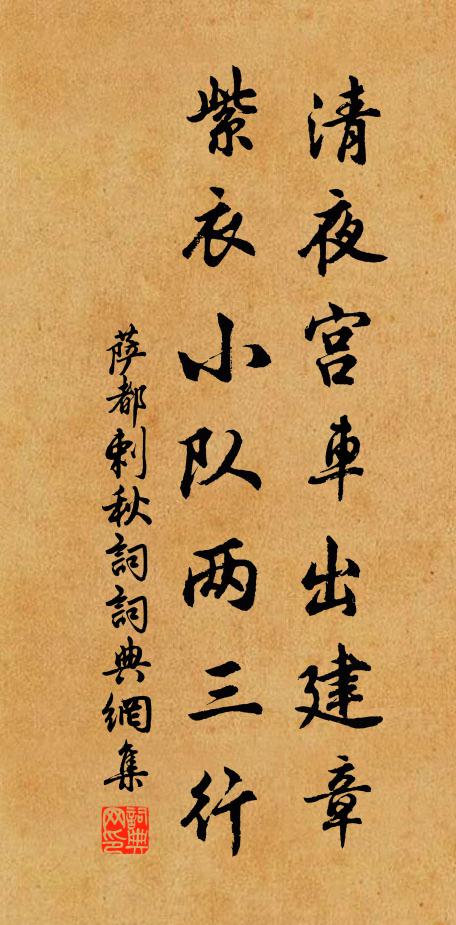 清夜宫車出建章
紫衣小队两三行
萨都剌秋詞詞典網集
詞典网印